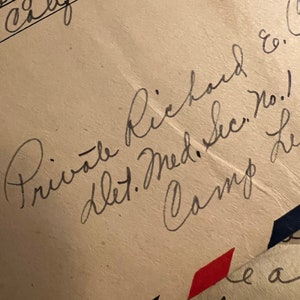 Calif
Private Richard E.
Det. Med. Sec. No. 1
Camp Le
e a